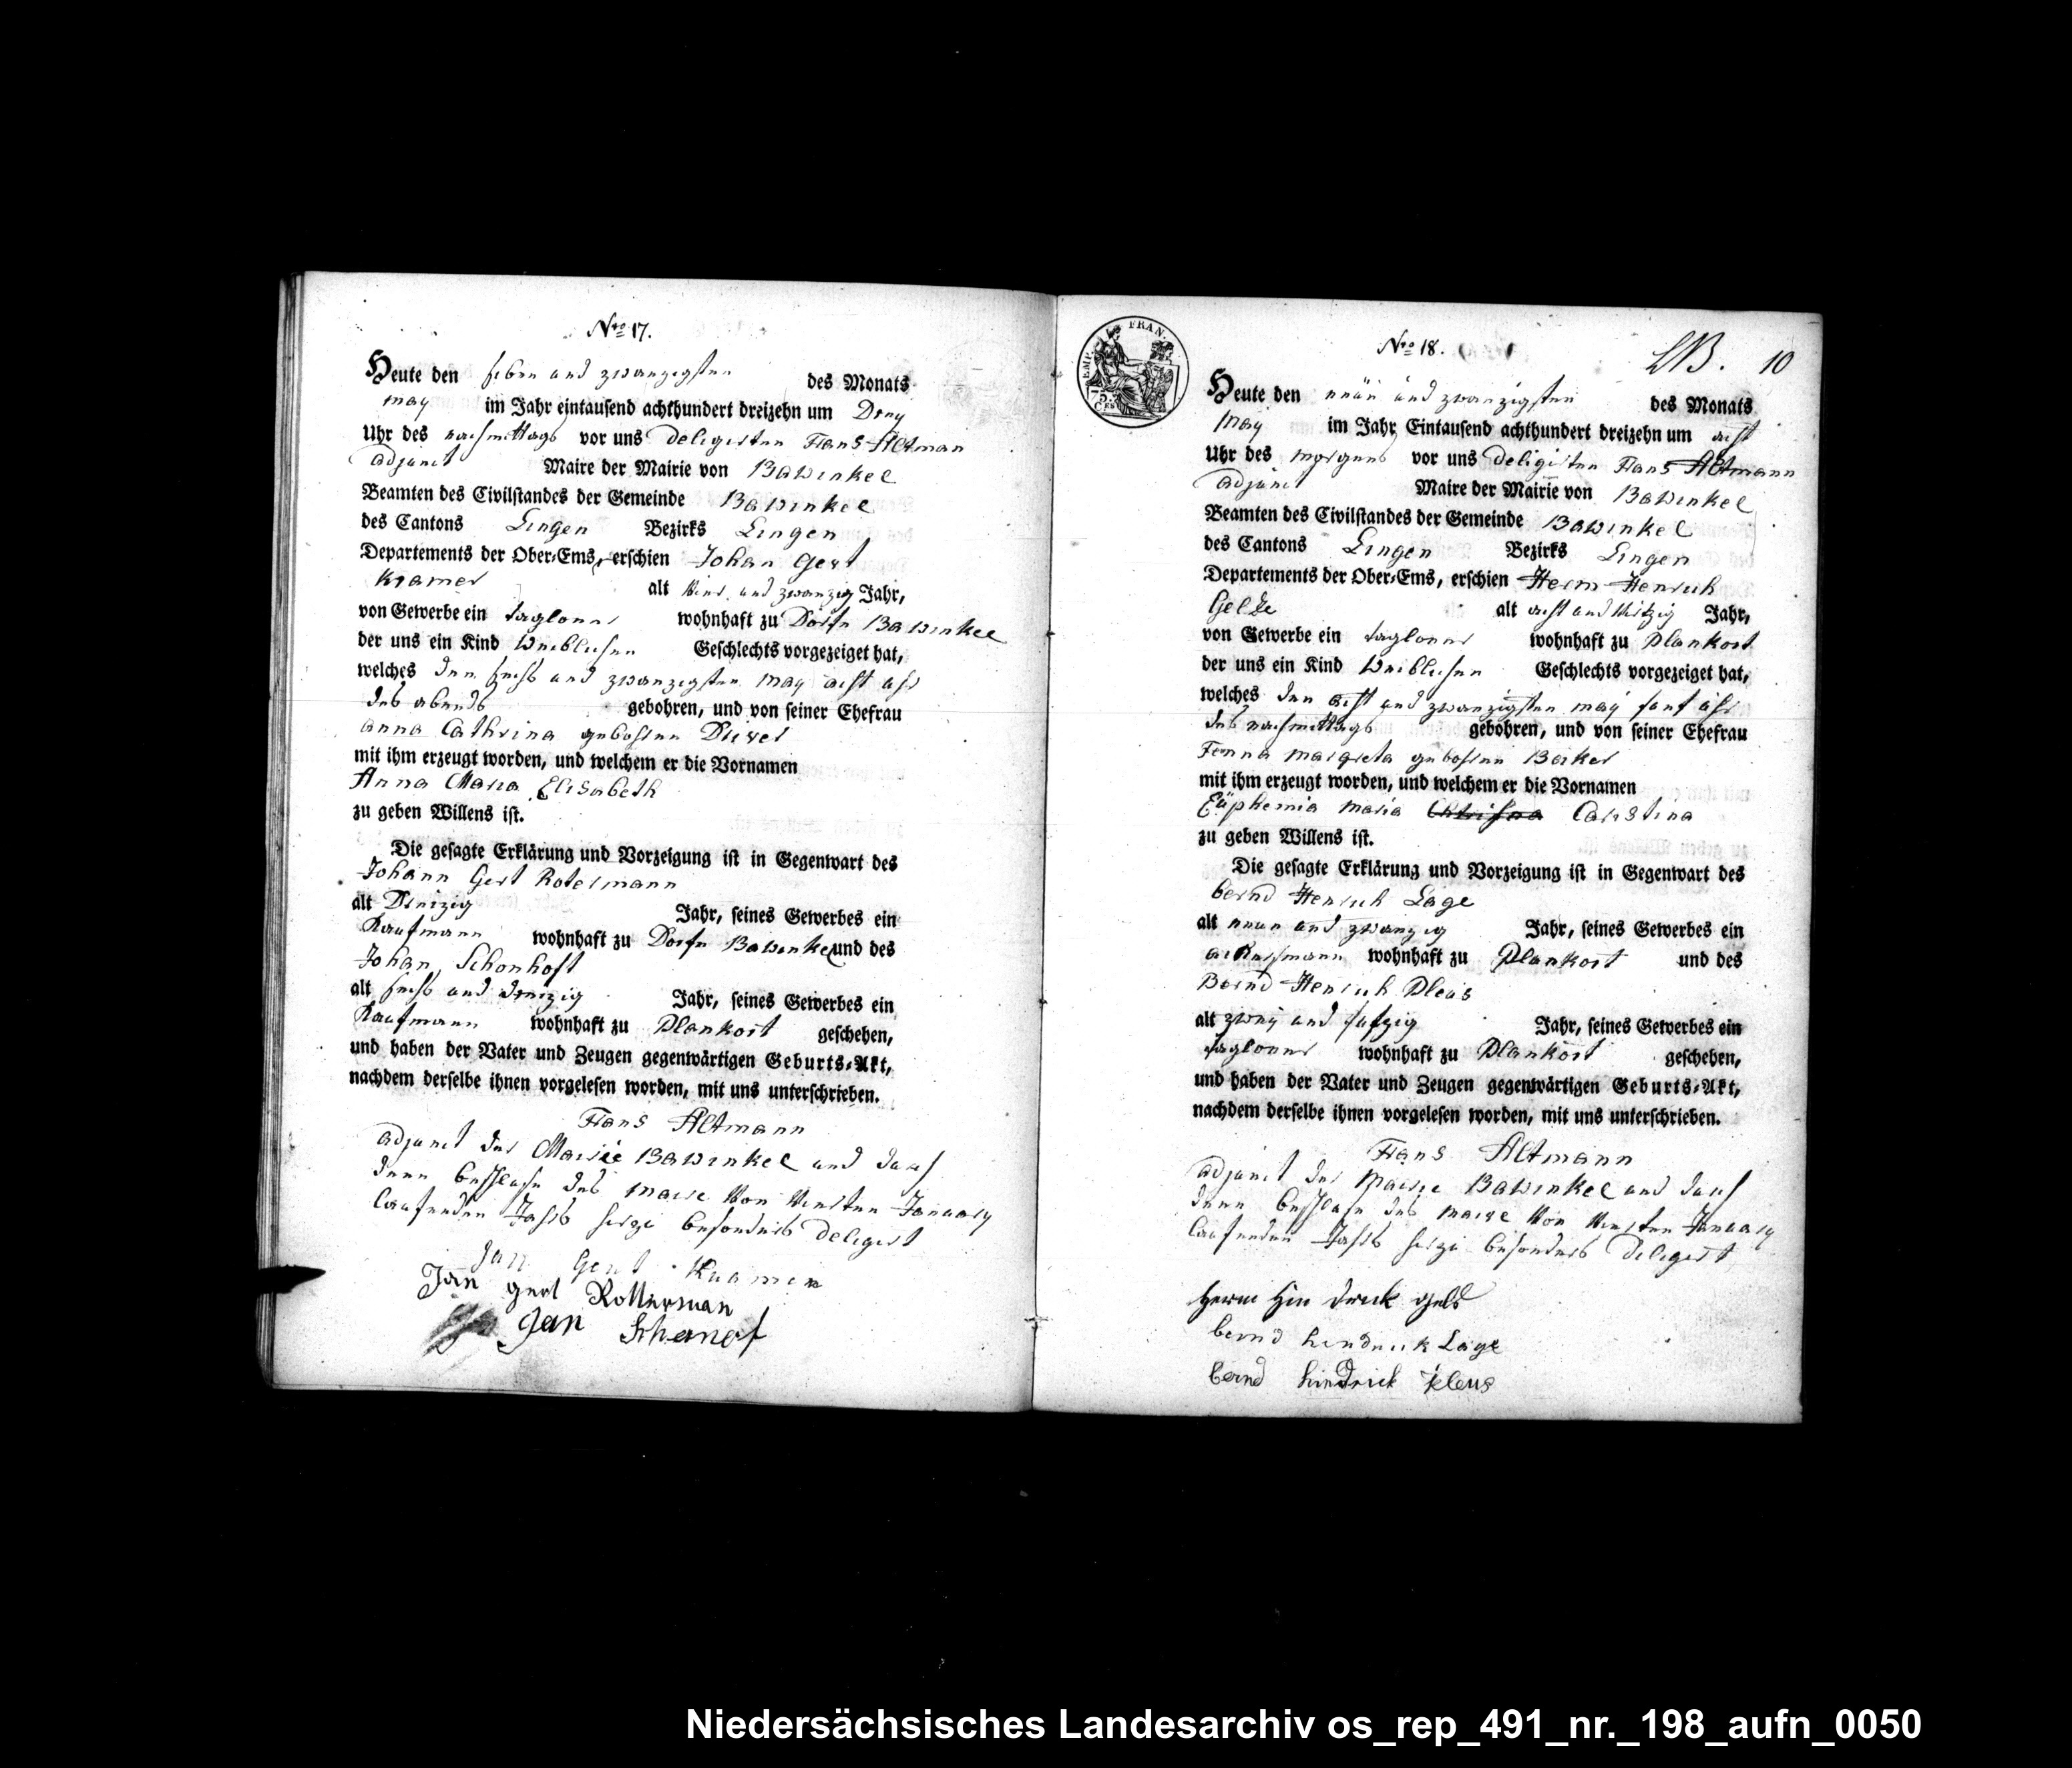 Nro 17.
Heute den sieben und zwanzigsten des Monats
may im Jahr eintausend achthundert dreizehn um Drey
Uhr des nachmittags vor uns deligirten Frans Altman
adjunct Maire der Mairie von Bawinkel
Beamten des Civilstandes der Gemeinde Bawinkel
des Cantons Lingen Bezirks Lingen
Departements der Ober-Ems, erschien Johan Gert
Kramer alt vier und zwanzig Jahr,
von Gewerbe ein taglöner wohnhaft zu Dorfe Bawinkel
der uns ein Kind Weiblichen Geschlechts vorgezeiget hat,
welches den sechs und zwanzigsten may acht uhr
des abends gebohren, und von seiner Ehefrau
anna Cathrina gebohren Düvel
mit ihm erzeugt worden, und welchem er die Vornamen
Anna Maria Elisabeth
zu geben Willens ist.
Die gesagte Erklärung und Vorzeigung ist in Gegenwart des
Johann Gert Rotermann
alt Dreizig Jahr, seines Gewerbes ein
Kaufmann wohnhaft zu Dorfe Bawinkel und des
Johan Schonhoft
alt sechs und dreizig Jahr, seines Gewerbes ein
Kaufmann wohnhaft zu Plankort geschehen,
und haben der Vater und Zeugen gegenwärtigen Geburts-Akt,
nachdem derselbe ihnen vorgelesen worden, mit uns unterschrieben.
Frans Altmann
adjunct der Mairie Bawinkel und durch
denn beschluse des maire von vierten January
laufenden Jahrs hirzu besonders deligirt
Jan Gert Kramer
Jan gert Rotterman
Jan Schanof
EMP. FRAN.
75.
CES
Nro 18. 10
Heute den neün und zwanzigsten des Monats
May im Jahr Eintausend achthundert dreizehn um acht
Uhr des morgens vor uns deligirten Frans Altmann
adjunct Maire der Mairie von Bawinkel
Beamten des Civilstandes der Gemeinde Bawinkel
des Cantons Lingen Bezirks Lingen
Departements der Ober-Ems, erschien Herm Henrich
Gelze alt acht und virtzig Jahr,
von Gewerbe ein taglöner wohnhaft zu Plankort
der uns ein Kind Weiblichen Geschlechts vorgezeiget hat,
welches den acht und zwanzigsten may fünf uhr
des nachmittags gebohren, und von seiner Ehefrau
Fenna margreta gebohren Barker
mit ihm erzeugt worden, und welchem er die Vornamen
Eüphemia maria Christina Carstina
zu geben Willens ist.
Die gesagte Erklärung und Vorzeigung ist in Gegenwart des
bernd Henrich Lage
alt neun und zwanzig Jahr, seines Gewerbes ein
ackersmann wohnhaft zu Plankort und des
Bernd Henrich Pleus
alt zwey und fufzig Jahr, seines Gewerbes ein
taglöner wohnhaft zu Plankort geschehen,
und haben der Vater und Zeugen gegenwärtigen Geburts-Akt,
nachdem derselbe ihnen vorgelesen worden, mit uns unterschrieben.
Frans Altmann
adjunct der Mairie Bawinkel und durch
denn beschluse des maire von vierten January
laufenden Jahrs hirzu besonders deligirt
herm hin drick gels
bernd hendrick Lage
bernd hindrick kleus
Niedersächsisches Landesarchiv os_rep_491_nr._198_aufn_0050